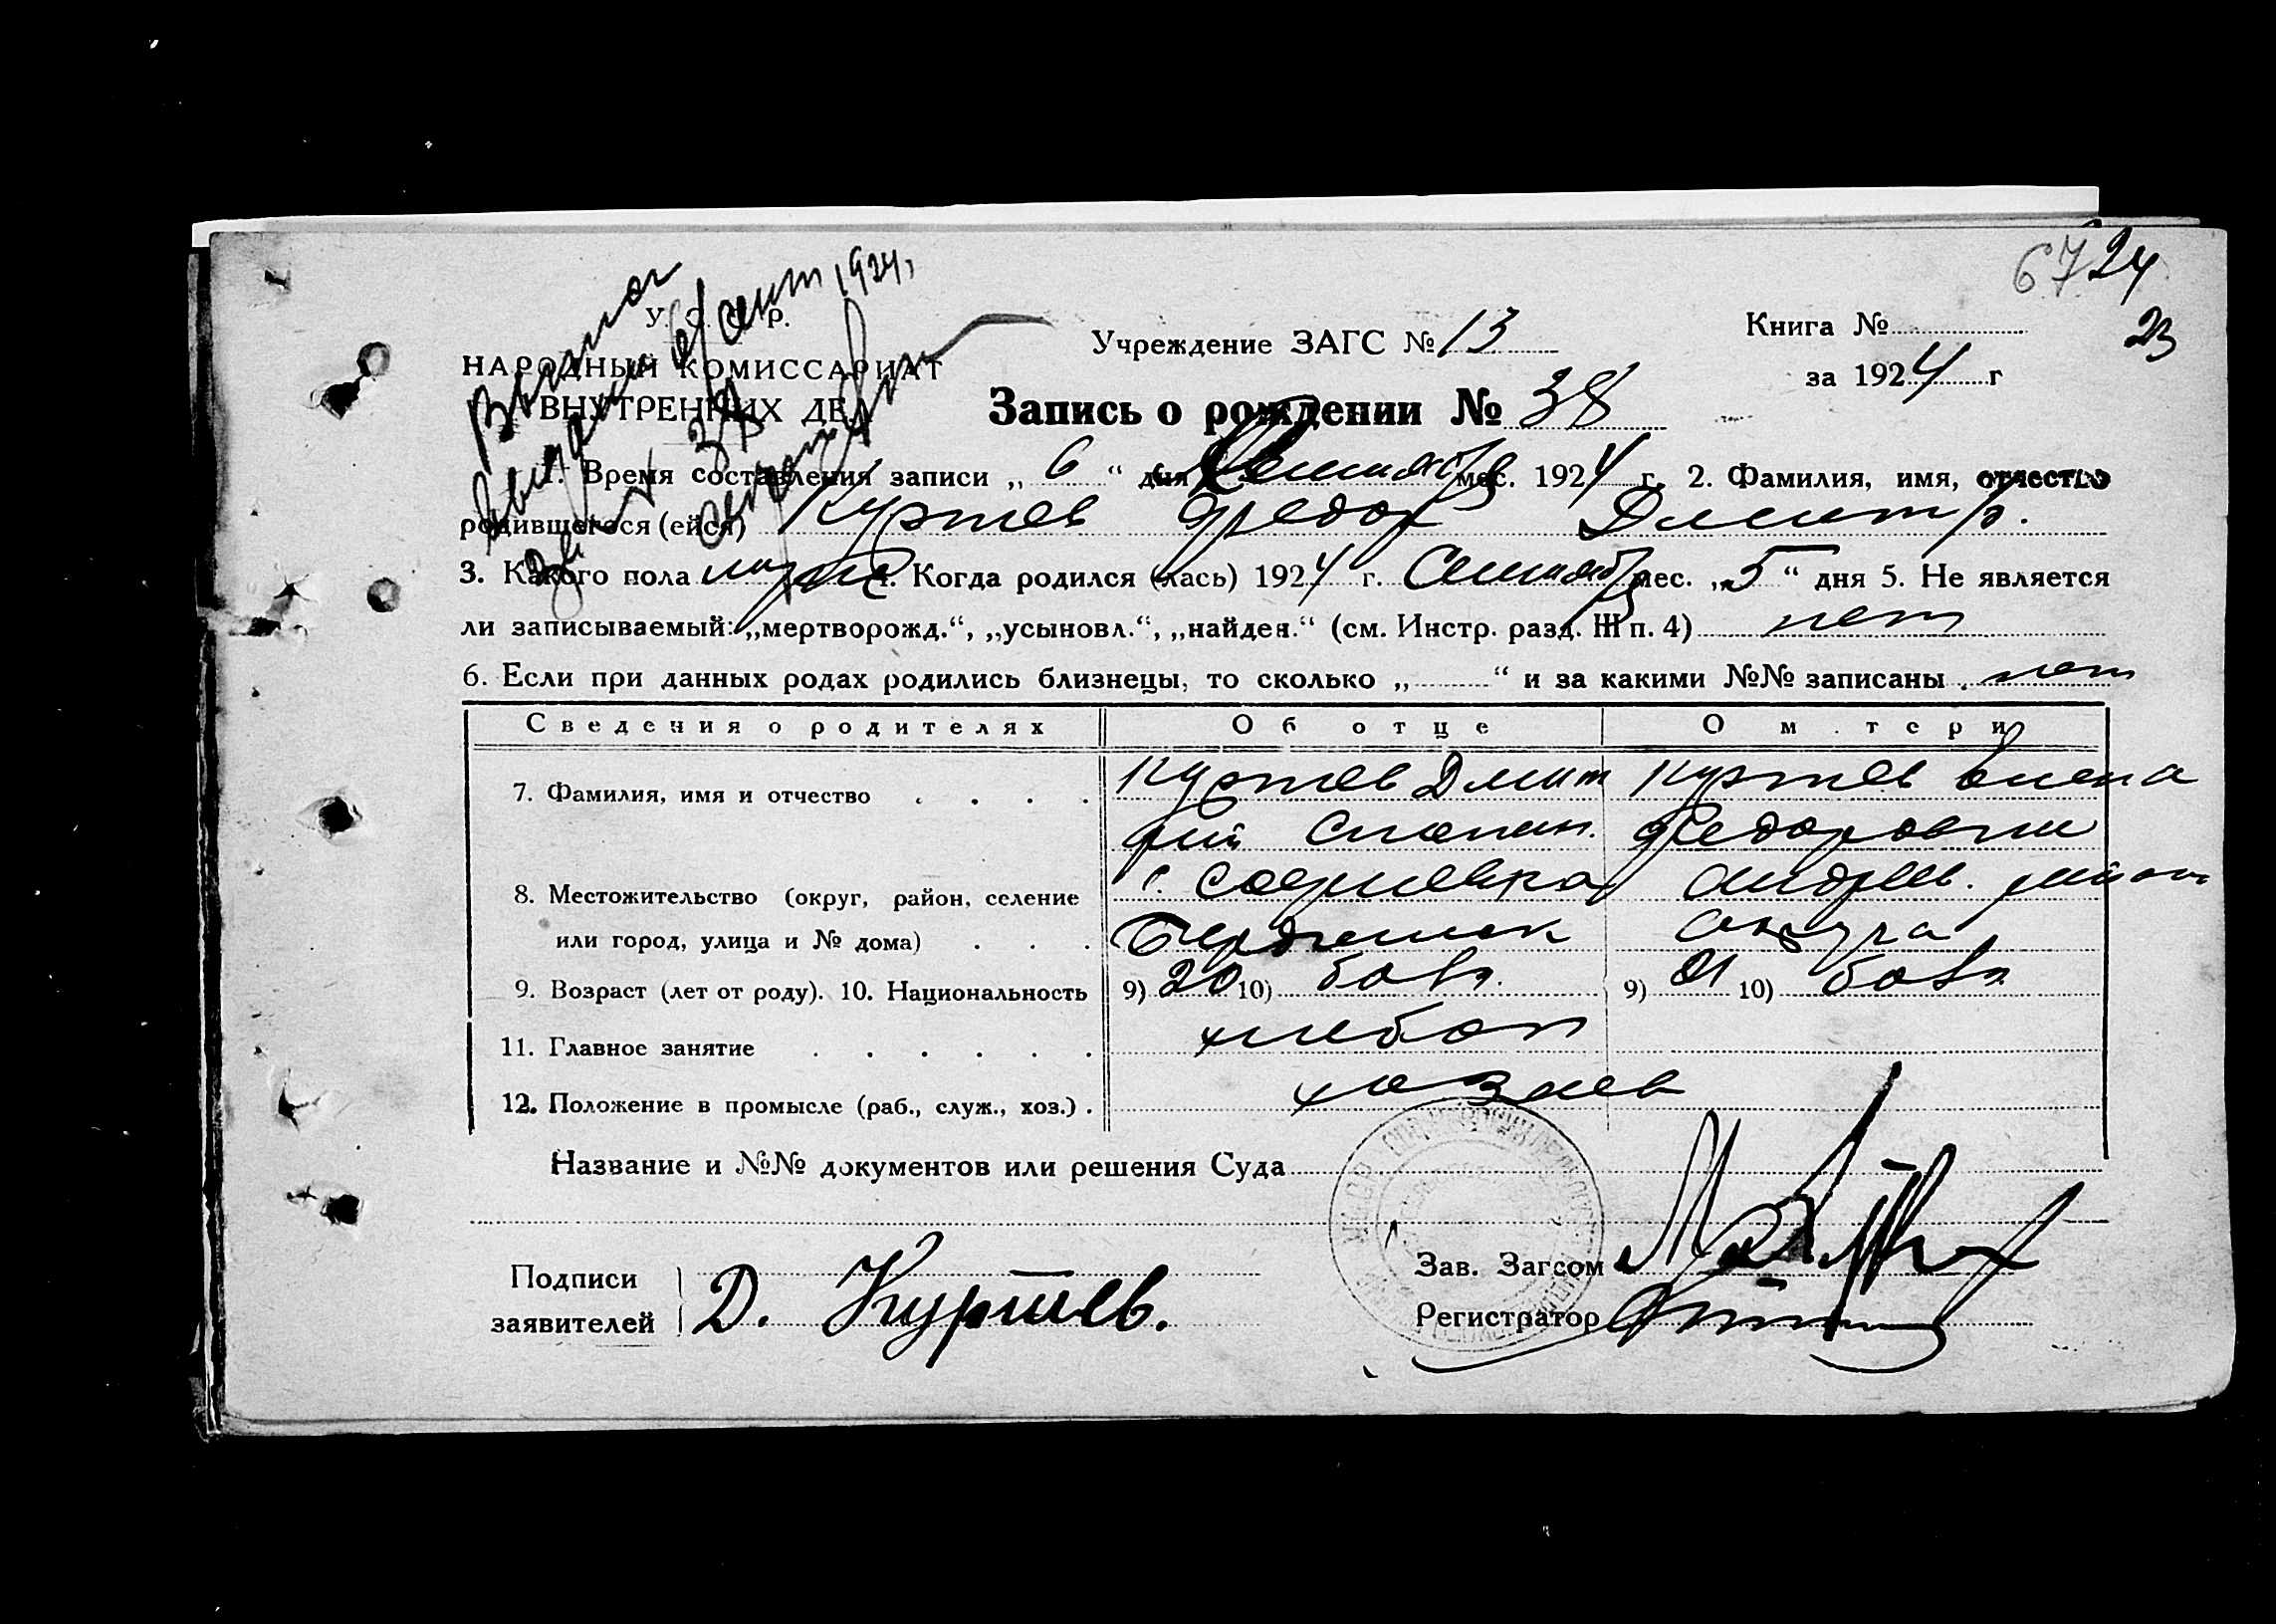 67 24
23
Выпись
выдана 6/сент 1924,
за № 38
У. С. С. Р.
НАРОДНЫЙ КОМИССАРИАТ
ВНУТРЕННИХ ДЕЛ
Учреждение ЗАГС № 13
Книга №
за 1924 г
Запись о рождении № 38
1. Время составления записи „ 6 “ дня Сентября мес. 1924 г. 2. Фамилия, имя, отчество
родившегося (ейся) Куртев Федор Дмитр.
3. Какого пола муж. 4. Когда родился (лась) 1924 г. Сентябр мес. „ 5 “ дня 5. Не является
ли записываемый: „мертворожд.“, „усыновл.“, „найден.“ (см. Инстр. разд. Ш п. 4) нет
6. Если при данных родах родились близнецы, то сколько „ “ и за какими №№ записаны . нет
Сведения о родителях Об отце О м.тери
7. Фамилия, имя и отчество . . . . Куртев Дмит Куртев Олена
рий Степан. Федоровна
8. Местожительство (округ, район, селение с. Софиевка Андреев. район
или город, улица и № дома) . . . Бердянск округа
9. Возраст (лет от роду). 10. Национальность 9) 20 10) болг. 9) 21 10) болг.
11. Главное занятие . . . . . . хлебоп
12. Положение в промысле (раб., служ., хоз.) . хозяев
Название и №№ документов или решения Суда
Подписи
заявителей Д. Куртев.
Зав. Загсом
Регистратор